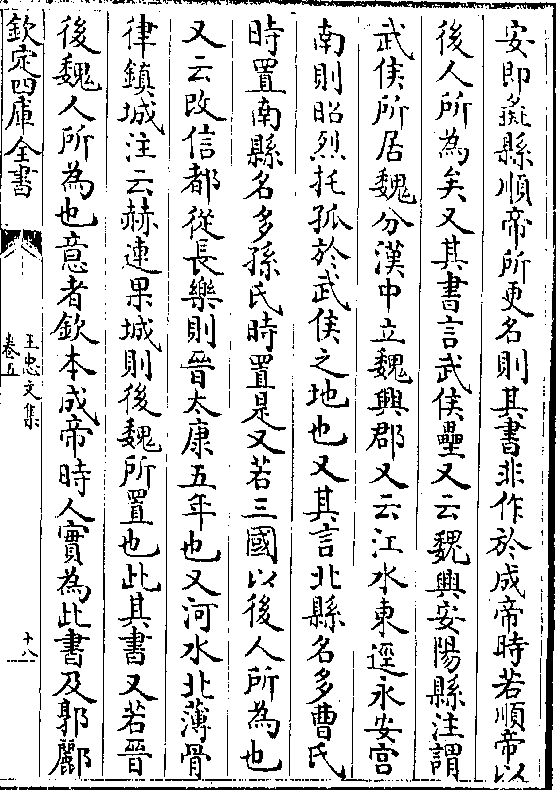 安即彘縣順帝所更名則其書非作於成帝時若順帝以
後人所為矣又其書言武侯壘又云魏興安陽縣注謂
武侯所居魏分漢中立魏興郡又云江水東逕永安宫
南則昭烈托孤於武侯之地也又其言北縣名多曹氏
時置南縣名多孫氏時置是又若三國以後人所為也
又云改信都從長樂則晉太康五年也又河水北薄骨
律鎮城注云赫連果城則後魏所置也此其書又若晉
後魏人所為也意者欽本成帝時人實為此書及郭酈
欽定四庫全書
王忠文集
卷五
十八